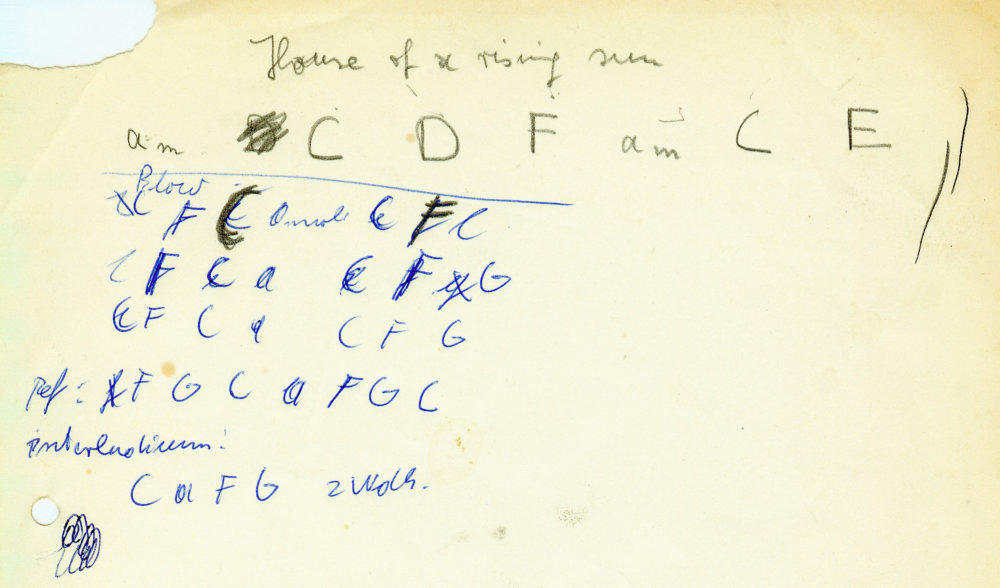 House of x rising sun
am C D F am C E
Blow
C F C a moll C F C
C F C a C F G
C F C a C F G
Ref: F G C a F G C
interludium:
C a F G 2 Wdh.